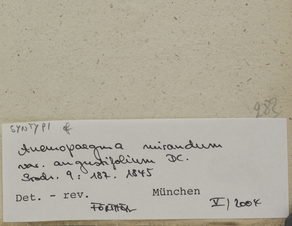 SYNTYPI of
Anemopaegma mirandum
var. angustifolium DC.
Prodr. 9: 187. 1845
Det. - rev. München
V/200